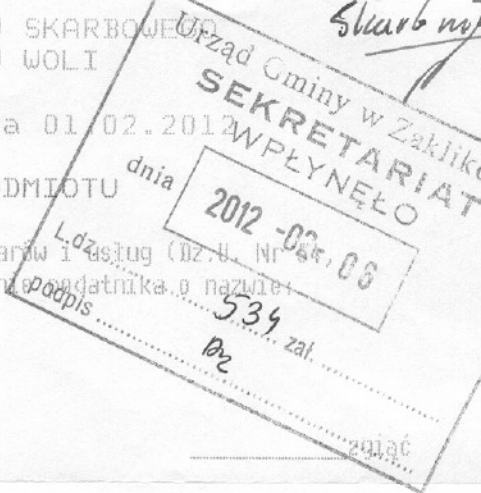 SKARBOWEGO
WOLI
Skarbnik
a 01.02.2012
DMIOTU
arów i usług (Dz.U. Nr 54,
podatnika o nazwie:
zgiąć
Urząd Gminy w Zakliko
SEKRETARIAT
WPŁYNĘŁO
dnia
2012 -02- 06
L.dz. 534 zał.
podpis